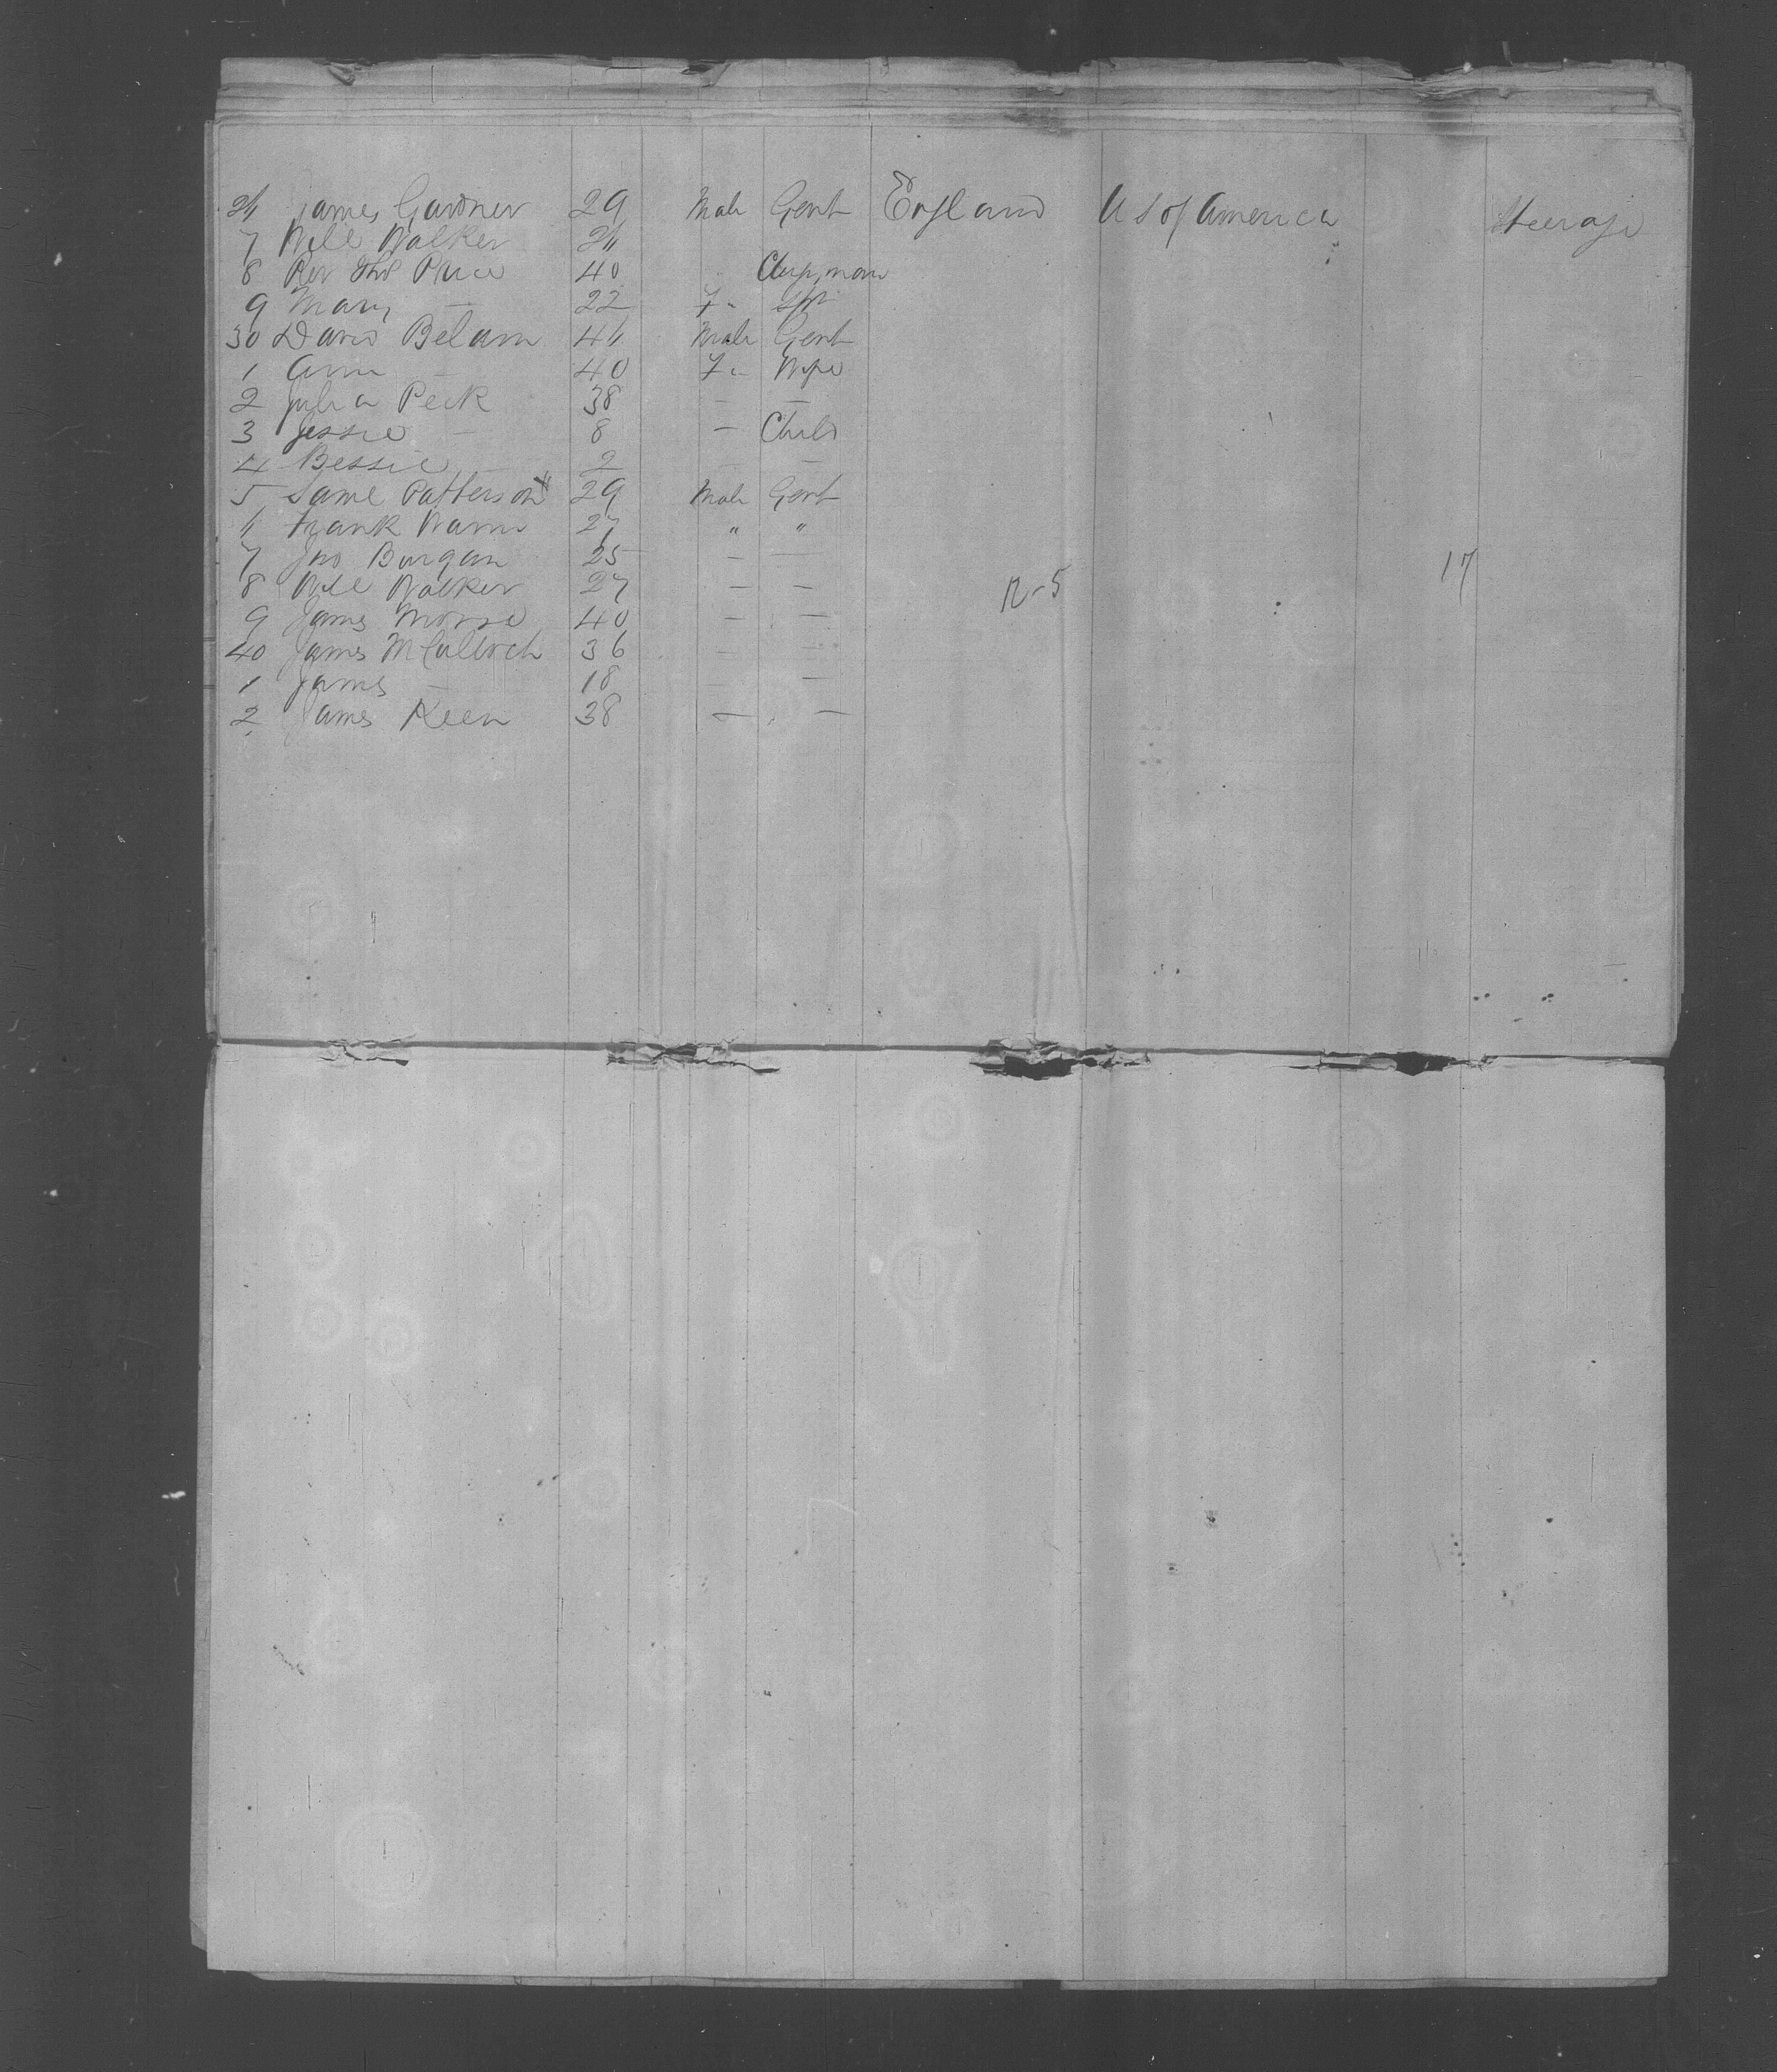 26 James Gardner 29 Male Gent England U S of America Steerage
7 Will Walker 26
8 Rev Thos 40 Clergyman
9 Mary — 22 F "
30 David Belam 46 Male Gent
1 Ann — 40 F " Wife
2 Julia Peck 38 — —
3 Jessie — 8 — Child
4 Bessie — 2 — —
5 Saml Patterson 29 Male Gent
6 Frank 27 " "
7 Jno Burgan 25 — —
8 Will Walker 27 — —
12-5 17
9 James Morse 40 — —
40 James McCulloch 36 — —
1 James — 18 — —
2 James Keen 38 — —